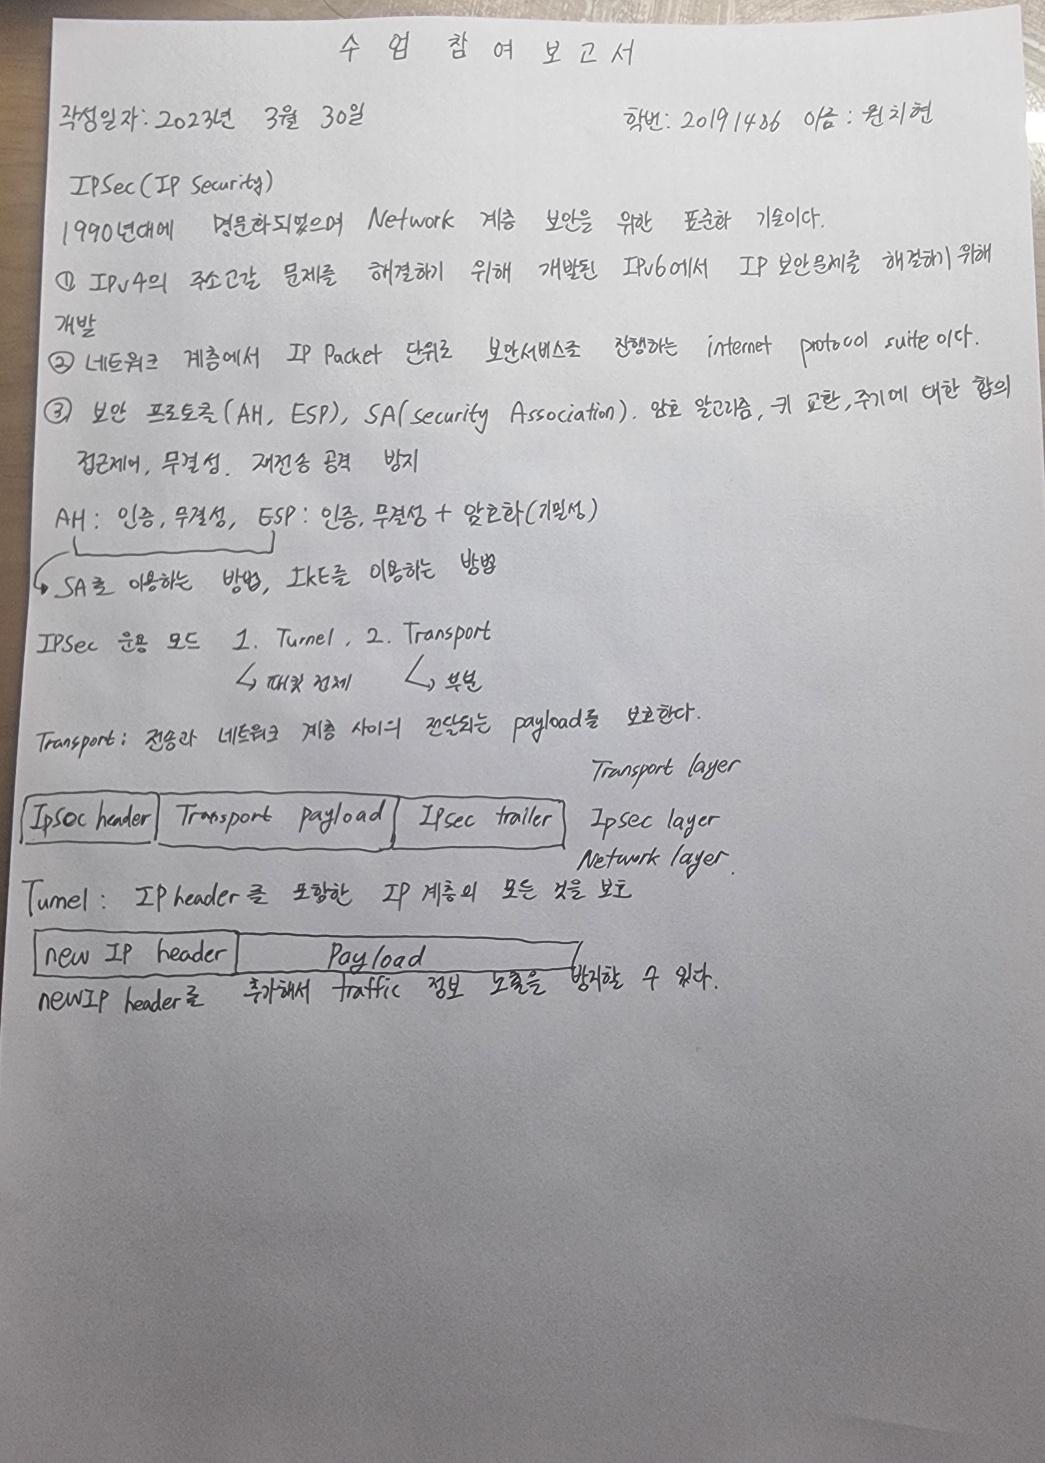 수업 참여 보고서
작성일자: 2023년 3월 30일 학번: 20191436 이름: 원치현
IPSec(IP Security)
1990년대에 명문화되었으며 Network 계층 보안을 위한 표준화 기술이다.
① IPv4의 주소고갈 문제를 해결하기 위해 개발된 IPv6에서 IP 보안문제를 해결하기 위해
개발
② 네트워크 계층에서 IP Packet 단위로 보안서비스를 진행하는 internet protocol suite이다.
③ 보안 프로토콜(AH, ESP), SA(security Association). 암호 알고리즘, 키 교환, 주기에 대한 합의
접근제어, 무결성. 재전송 공격 방지
AH: 인증, 무결성, ESP: 인증, 무결성 + 암호화(기밀성)
SA를 이용하는 방법, IkE를 이용하는 방법
IPSec 운용 모드 1. Tunnel, 2. Transport
패킷 전체 부분
Transport: 전송과 네트워크 계층 사이의 전달되는 payload를 보호한다.
Transport layer
Ipsec header Transport payload IPsec trailer Ipsec layer
Network layer.
Tunnel: IP header를 포함한 IP 계층의 모든 것을 보호
new IP header Payload
newIP header를 추가해서 traffic 정보 노출을 방지할 수 있다.